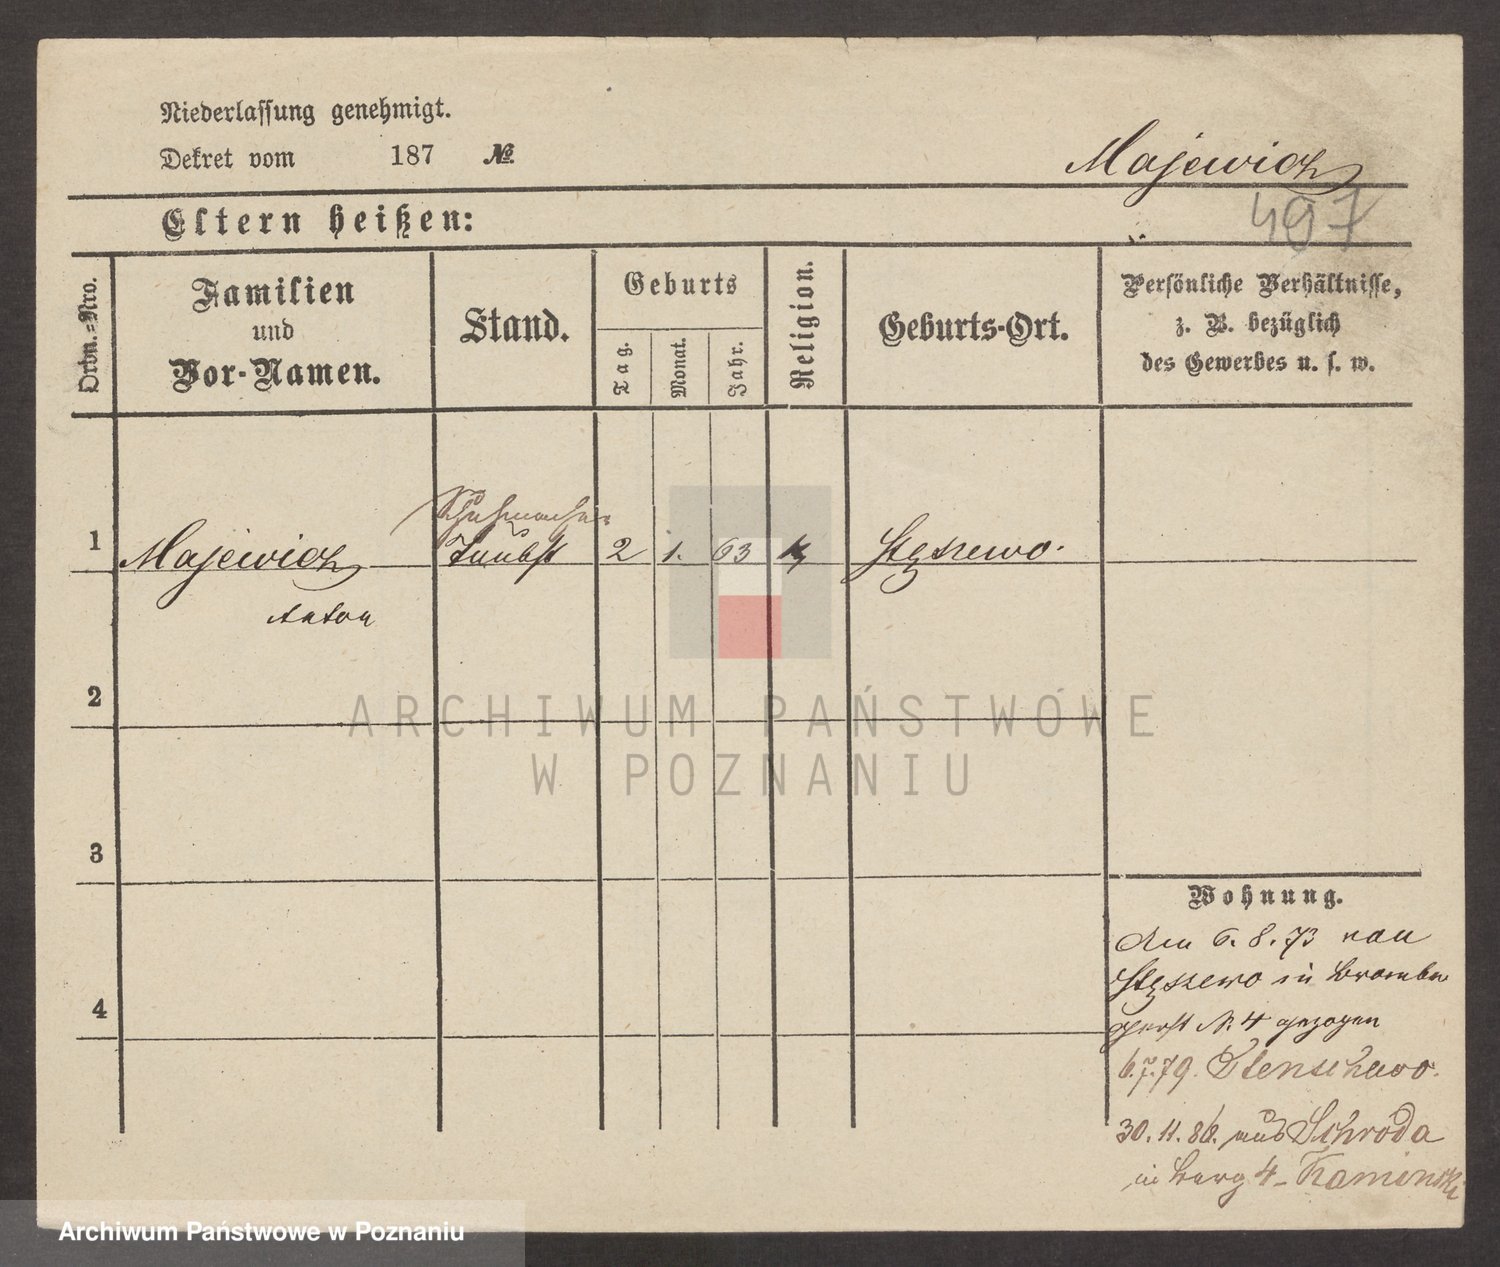 Niederlassung genehmigt.
Dekret vom 187 №
Majewicz
497
Eltern heißen:
Ordn.-Nro.
Familien
und
Vor-Namen.
Stand.
Geburts
Tag.
Monat.
Jahr.
Religion.
Geburts-Ort.
Persönliche Verhältnisse,
z. B. bezüglich
des Gewerbes u. s. w.
Schuhmacher
1 Majewicz Taubst 2 1. 63 k Stęszewo.
Anton
2
ARCHIWUM PAŃSTWOWE
W POZNANIU
3
4
Wohnung.
Am 6. 8. 73 von
Stęszewo in
№ 4 gezogen
6.7.79. Stenschewo.
30. 11. 86. aus Schroda
in Berg 4 - Kaminski
Archiwum Państwowe w Poznaniu